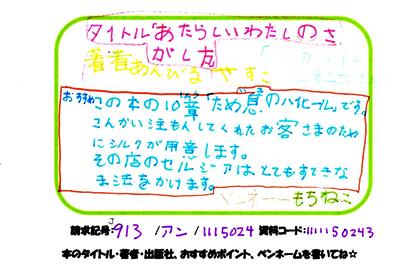 タイトル「あたらしいわたしのさ
がし方
著者あんびるやすこ
おすすめ この本の10章「ため息のハイヒール」です。
こんかい注もんしてくれたお客さまのため
にシルクが用意します。
その店のセルジアは、とてもすてきな
ま法をかけます。
ペンネーム もちねこ
請求記号: J913 /アン /1115024 資料コード:1111150243
本のタイトル・著者・出版社、おすすめポイント、ペンネームを書いてね☆